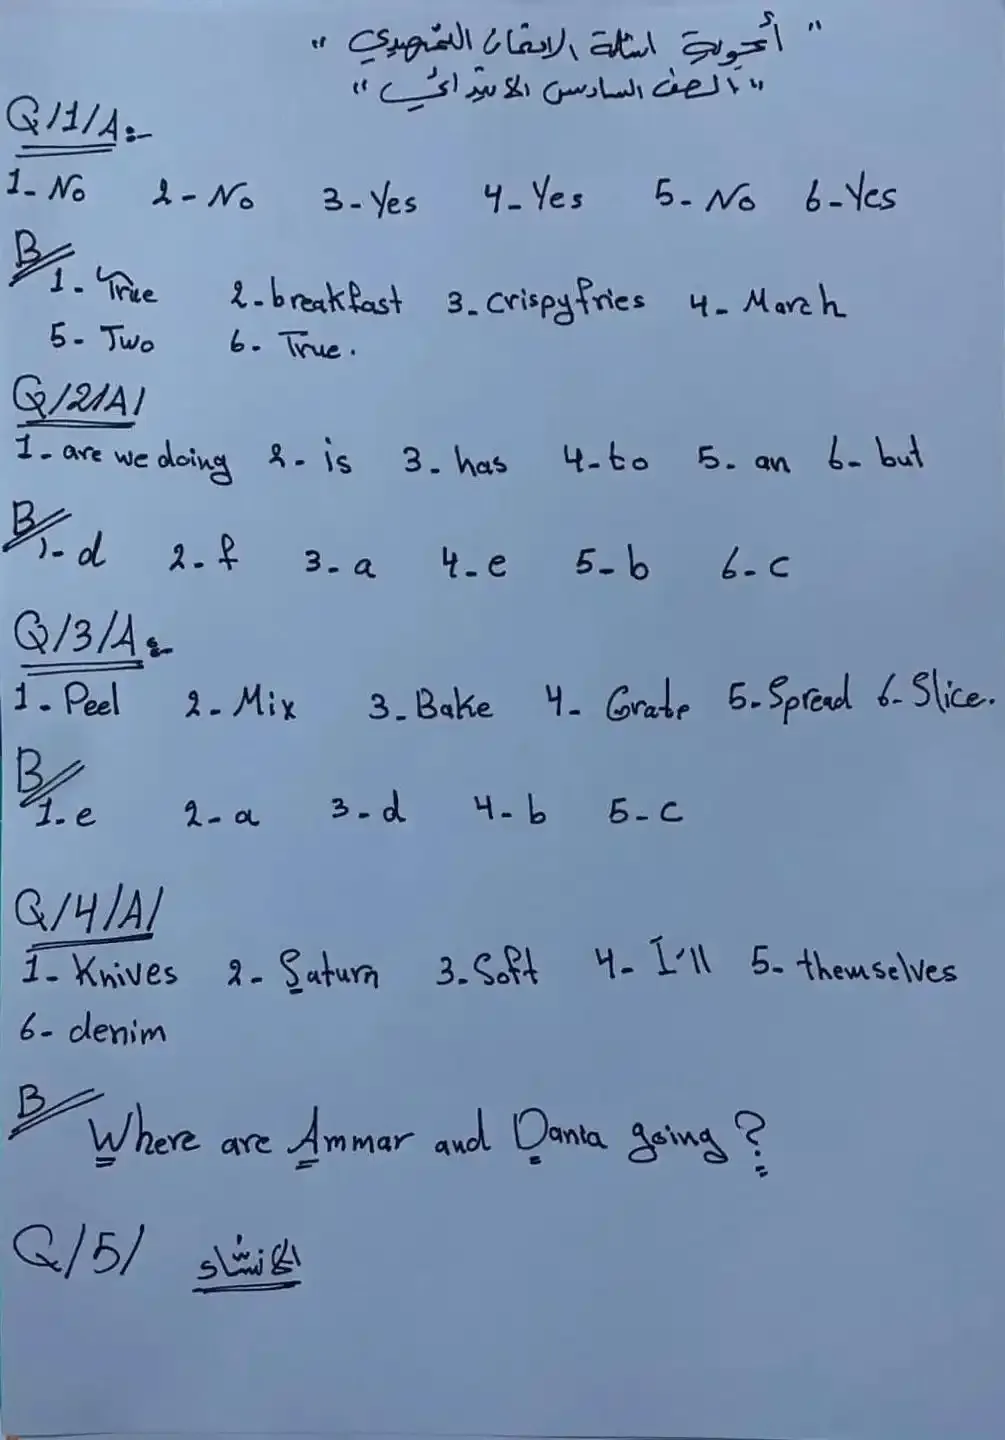 " أجوبة اسئلة الامتحان التمهيدي "
" الصف السادس الابتدائي "
Q/1/A:-
1- No 2- No 3- Yes 4- Yes 5- No 6- Yes
B/
1- True 2- breakfast 3- crispy fries 4- March
5- Two 6- True.
Q/2/A/
1- are we doing 2- is 3- has 4- to 5- an 6- but
B/
1- d 2- f 3- a 4- e 5- b 6- c
Q/3/A:-
1- Peel 2- Mix 3- Bake 4- Grate 5- Spread 6- Slice.
B/
1- e 2- a 3- d 4- b 5- c
Q/4/A/
1- Knives 2- Saturn 3- Soft 4- I'll 5- themselves
6- denim
B/
Where are Ammar and Dania going?
Q/5/ الانشاء